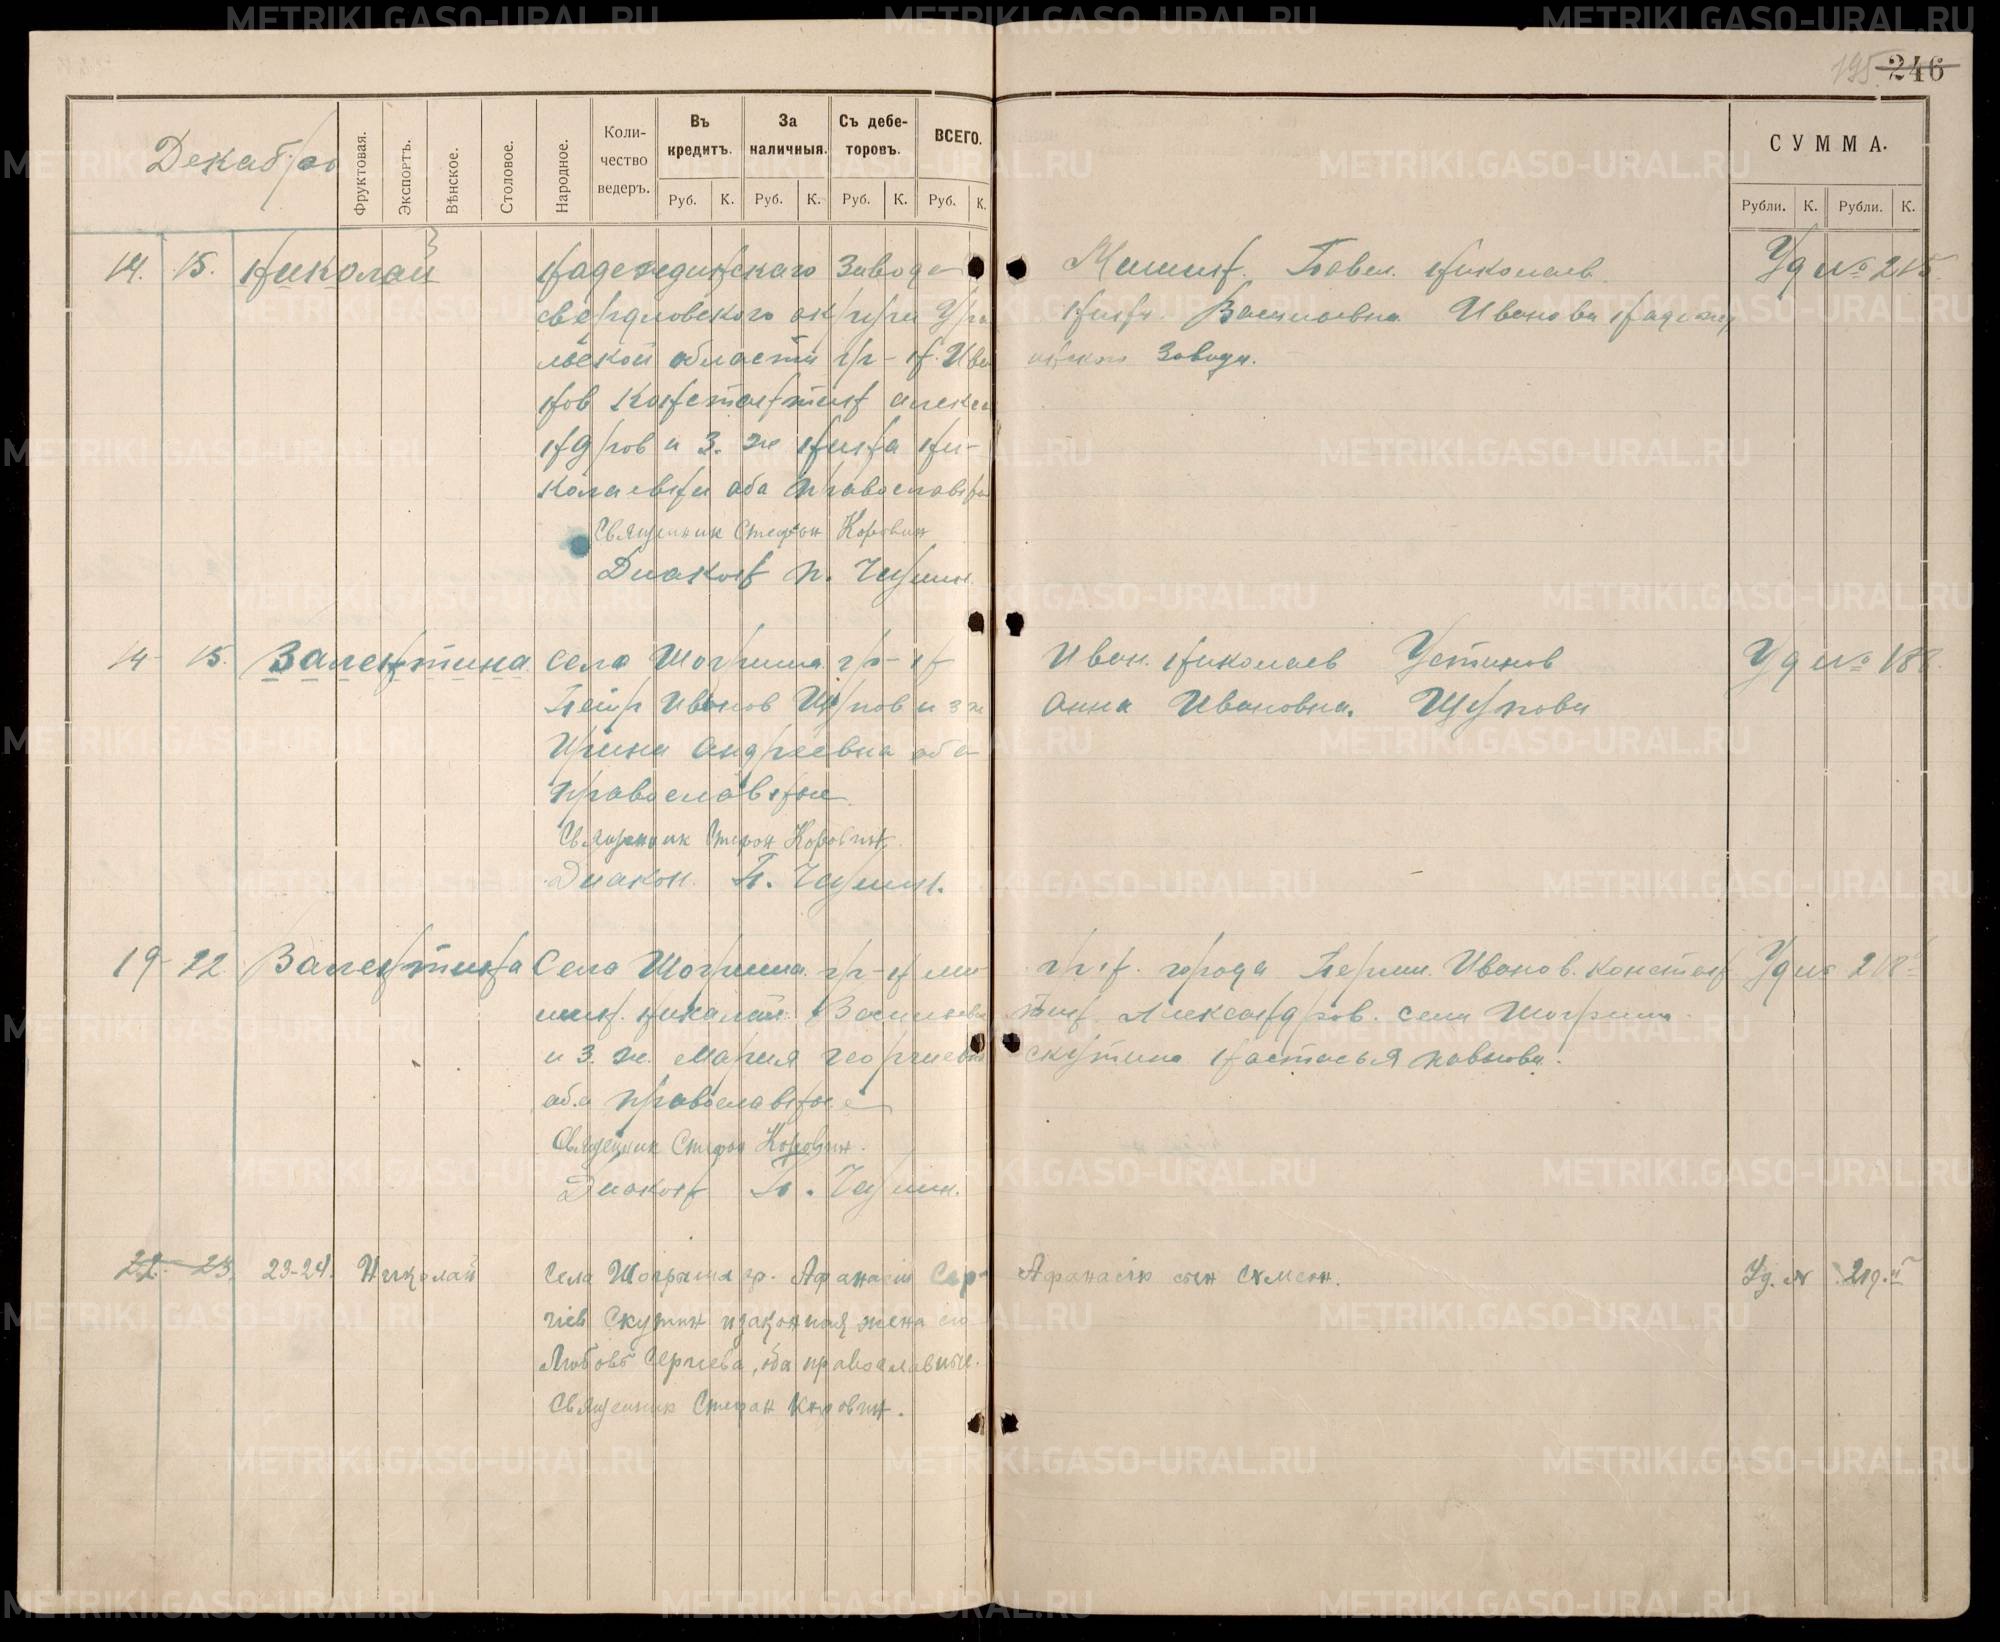 195 246
Декабрь
Фруктовая.
Экспортъ.
Вѣнское.
Столовое.
Народное.
Коли-
чество
ведеръ.
Въ
кредитъ.
За
наличныя.
Съ дебе-
торовъ.
ВСЕГО.
Руб. К. Руб. К. Руб. К. Руб. К.
СУММА.
Рубли. К. Рубли. К.
14. 15. Николай
Надеждинского Завода
свердловского округа Ура
льской области гр-н Ива
нов Константин алекса
ндров и з. ж Нина Ни-
колаевна оба православны
Священник Стефан Коровин
Диакон П. Чащин.
Мишин. Павел. Николаев.
Нин. Васильевна Иванова Надежд
инского Завода.
Уд № 215
14- 15. Валентина
села Шогриша гр-н
Петр Иванов Щупов и з ж
Ирина Андреевна оба
православные
Священник Стефан Коровин.
Диакон П. Чащин.
Иван. Николаев Устинов
Анна Ивановна. Щупова
Уд № 188.
19- 22 Валентина
Села Шогриша гр-н ми-
шин. Николай Васильев
и з. ж. Мария георгиевна
оба православные
Священник Стефан Коровин.
Диакон П. Чащин.
гр н. города Перми. Иванов. Констан
тин Александров. села Шогриша
скутина Настасья павлова.
Уд № 218
22- 23. 23-24. Николай
Села Шогриша гр. Афанасiй Сер-
гiев Скутин и законная жена его
Любовь Сергiева, оба православные.
Священник Стефан Коровин.
Афанасiя сын Симеон.
Уд. № 219.й
METRIKI.GASO-URAL.RU